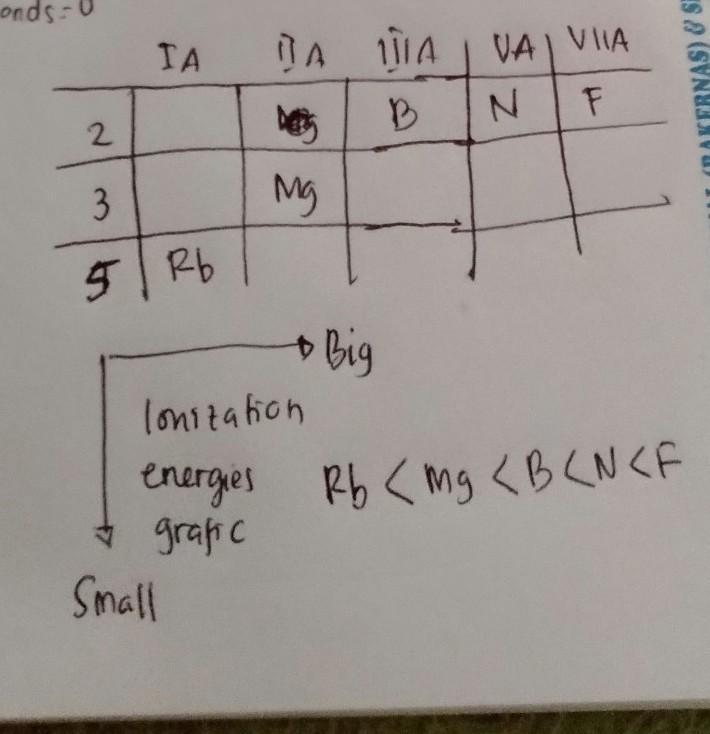 onds=0
IA IIA IIIA VA VIIA
2 B N F
3 Mg
5 Rb
Big
Ionization
energies
grafic
Rb < Mg < B < N < F
Small
(BAKERNAS) &